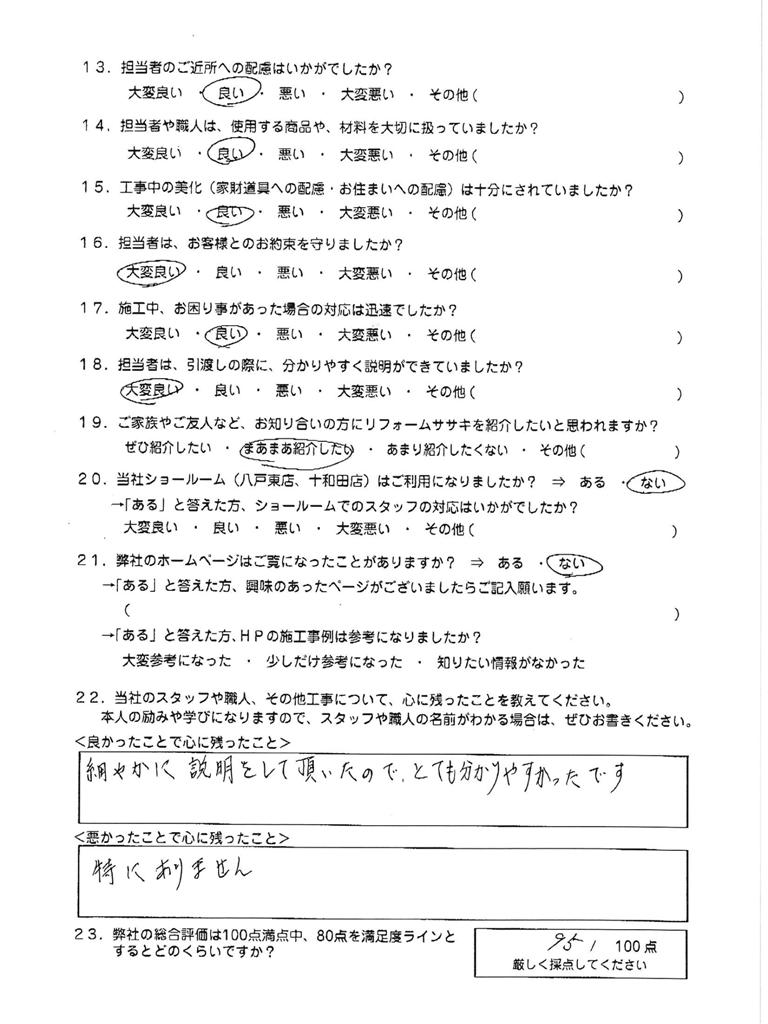 13．担当者のご近所への配慮はいかがでしたか？
大変良い ・ 良い ・ 悪い ・ 大変悪い ・ その他（ ）
14．担当者や職人は、使用する商品や、材料を大切に扱っていましたか？
大変良い ・ 良い ・ 悪い ・ 大変悪い ・ その他（ ）
15．工事中の美化（家財道具への配慮・お住まいへの配慮）は十分にされていましたか？
大変良い ・ 良い ・ 悪い ・ 大変悪い ・ その他（ ）
16．担当者は、お客様とのお約束を守りましたか？
大変良い ・ 良い ・ 悪い ・ 大変悪い ・ その他（ ）
17．施工中、お困り事があった場合の対応は迅速でしたか？
大変良い ・ 良い ・ 悪い ・ 大変悪い ・ その他（ ）
18．担当者は、引渡しの際に、分かりやすく説明ができていましたか？
大変良い ・ 良い ・ 悪い ・ 大変悪い ・ その他（ ）
19．ご家族やご友人など、お知り合いの方にリフォームササキを紹介したいと思われますか？
ぜひ紹介したい ・ まあまあ紹介したい ・ あまり紹介したくない ・ その他（ ）
20．当社ショールーム（八戸東店、十和田店）はご利用になりましたか？ ⇒ ある ・ ない
→「ある」と答えた方、ショールームでのスタッフの対応はいかがでしたか？
大変良い ・ 良い ・ 悪い ・ 大変悪い ・ その他（ ）
21．弊社のホームページはご覧になったことがありますか？ ⇒ ある ・ ない
→「ある」と答えた方、興味のあったページがございましたらご記入願います。
（ ）
→「ある」と答えた方、HPの施工事例は参考になりましたか？
大変参考になった ・ 少しだけ参考になった ・ 知りたい情報がなかった
22．当社のスタッフや職人、その他工事について、心に残ったことを教えてください。
本人の励みや学びになりますので、スタッフや職人の名前がわかる場合は、ぜひお書きください。
＜良かったことで心に残ったこと＞
細やかに説明をして頂いたので、とても分かりやすかったです
＜悪かったことで心に残ったこと＞
特にありません
23．弊社の総合評価は100点満点中、80点を満足度ラインと
するとどのくらいですか？
95 / 100点
厳しく採点してください